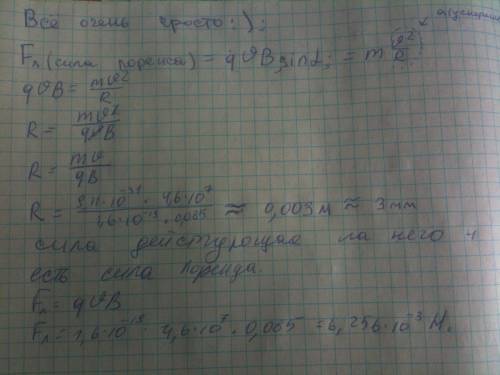 Всё очень просто :);
a(ускорение
Fл (сила лоренса) = qϑB sinL; = m ϑ²/R
qϑB = mϑ²/R
R = mϑ²/qϑB
R = mϑ/qB
R = 9,11·10⁻³¹ · 4,6·10⁷ / 1,6·10⁻¹⁹ · 0,085 ≈ 0,003 м ≈ 3 мм
сила действующая на него и
есть сила лоренца.
Fл = qϑB
Fл = 1,6·10⁻¹⁹ · 4,6·10⁷ · 0,085 = 6,256·10⁻³ Н.